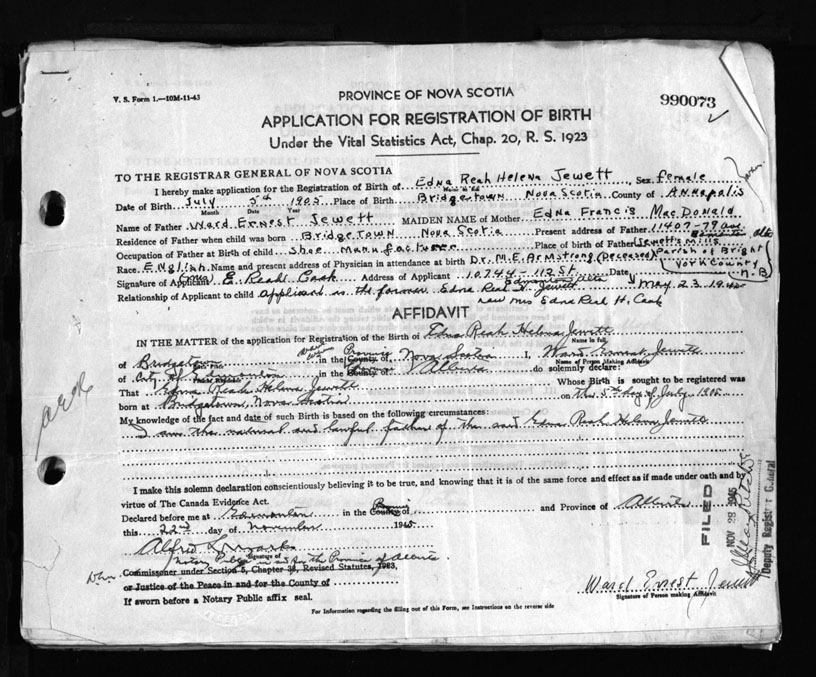 V. S. Form 1.—10M-11-43
PROVINCE OF NOVA SCOTIA
990073
APPLICATION FOR REGISTRATION OF BIRTH
Under the Vital Statistics Act, Chap. 20, R. S. 1923
TO THE REGISTRAR GENERAL OF NOVA SCOTIA
I hereby make application for the Registration of Birth of Edna Reah Helena Jewett, Sex female
Name in full
Date of Birth July 5th 1905 Place of Birth Bridgetown Nova Scotia County of Annapolis
Month Date Year
Name of Father Ward Ernest Jewett MAIDEN NAME of Mother Edna Francis MacDonald
Residence of Father when child was born Bridgetown Nova Scotia Present address of Father 11407-79 ave Edmonton alta
Occupation of Father at birth Shoe Manufacturer Place of birth of Father Jewett's Mills Parish of Bright York County N.B
Race English Name and present address of Physician in attendance at birth Dr. M.E. Armstrong (Deceased)
Signature of Applicant E Reah Cook Address of Applicant 10744-112 St. Edmonton Date May 23. 19
Relationship of Applicant to child applicant is the former Edna Reah H. Jewett
now Mrs Edna Reah H. Cook
AFFIDAVIT
IN THE MATTER of the application for Registration of the Birth of Edna Reah Helena Jewett
Name in full
of Bridgetown in the County of Province Nova Scotia I, Ward Ernest Jewett
Name of Person Making Affidavit
of City of Edmonton in the County of Province Alberta do solemnly declare:
That Edna Reah Helena Jewett Whose Birth is sought to be registered was
born at Bridgetown, Nova Scotia on the 5th day of July 1905
My knowledge of the fact and date of such Birth is based on the following circumstances:
I am the natural and lawful father of the said Edna Reah Helena Jewett
I make this solemn declaration conscientiously believing it to be true, and knowing that it is of the same force and effect as if made under oath and by
virtue of The Canada Evidence Act.
Declared before me at Edmonton in the County of and Province of Alberta
this 22nd day of November 1945
Alfred
Signature of
Notary Public in and for the Province of Alberta
Commissioner under Section 5, Chapter 38, Revised Statutes, 1923,
or Justice of the Peace in and for the County of
If sworn before a Notary Public affix seal.
Ward Ernest Jewett
Signature of Person making Affidavit
For Information regarding the filling out of this Form, see Instructions on the reverse side
FILED
NOV 28 1945
Deputy Registrar General